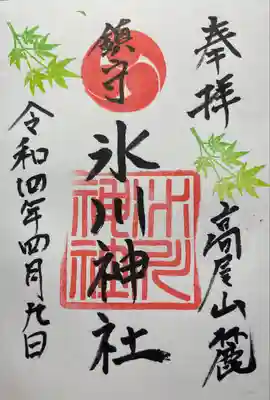 奉拝
高尾山麓
鎮守
氷川神社
氷川神社
令和四年四月九日